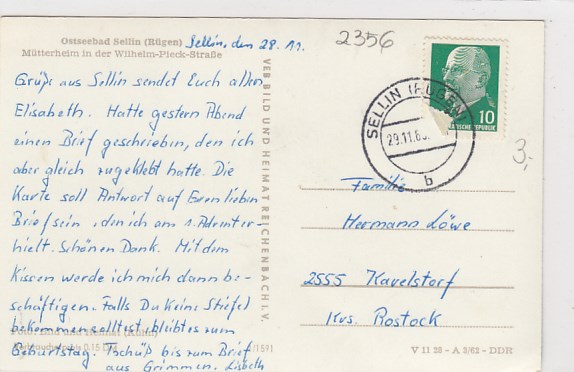 Ostseebad Sellin (Rügen)
Mütterheim in der Wilhelm-Pieck-Straße
Sellin, den 28.11.
Grüße aus Sellin sendet Euch allen
Elisabeth. Hatte gestern Abend
einen Brief geschrieben, den ich
aber gleich zugeklebt hatte. Die
Karte soll Antwort auf Euren lieben
Brief sein, den ich am 1. Advent er-
hielt. Schönen Dank. Mit dem
Kissen werde ich mich dann be-
schäftigen. Falls Du keine Stiefel
bekommen solltest, bleibt es zum
Geburtstag. Tschüß bis zum Brief
aus Grimmen. Lisbeth
/1591
VEB BILD UND HEIMAT REICHENBACH i. V.
2356
10
SELLIN (RÜGEN)
29.11.
b
3,-
Familie
Hermann Löwe
2555 Kavelstorf
Krs. Rostock
V 11 28 - A 3/62 - DDR